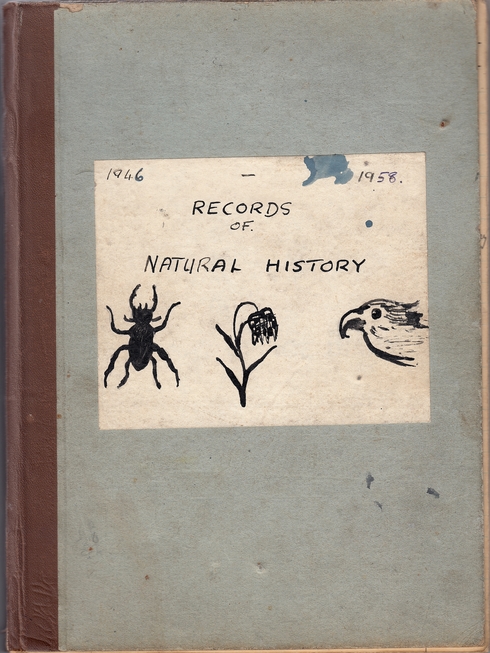 1946 – 1958.
RECORDS
OF.
NATURAL HISTORY